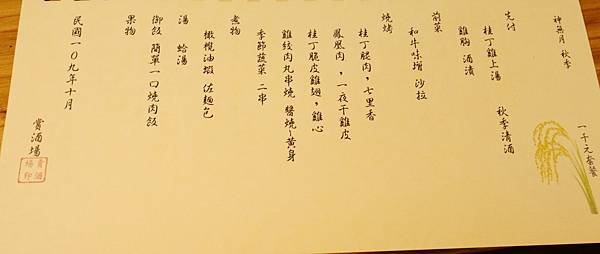 神無月 秋季
一千元套餐
先付
桂丁雞上湯 秋季清酒
雞胸 酒漬
前菜
和牛味增 沙拉
燒烤
桂丁腿肉，七里香
鳳凰肉，一夜干雞皮
桂丁脆皮雞翅，雞心
雞絞肉丸串燒 醬燒~黃身
季節蔬菜 二串
煮物
橄欖油蝦 佐麵包
湯 蛤湯
御飯 簡單一口燒肉飯
果物
民國一0九年十月
賞酒場
賞酒場印